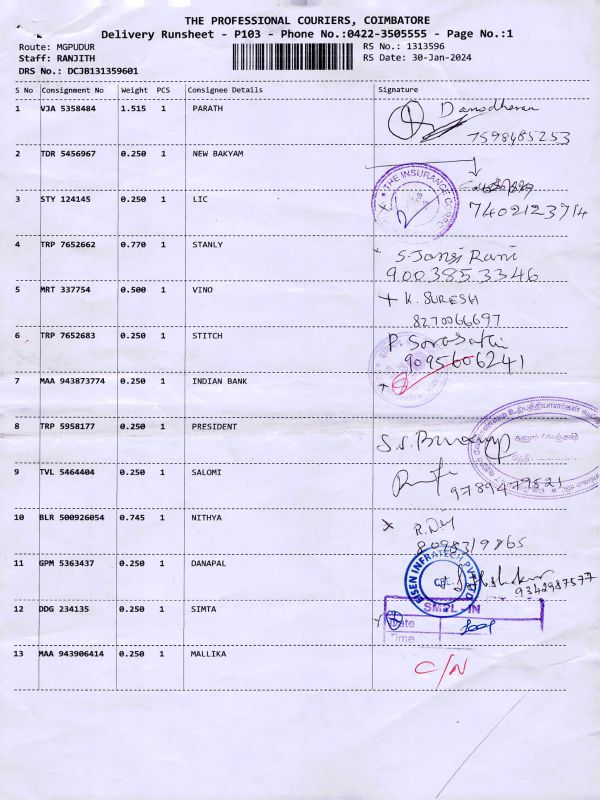 THE PROFESSIONAL COURIERS, COIMBATORE
Delivery Runsheet - P103 - Phone No.:0422-3505555 - Page No.:1
Route: MGPUDUR RS No.: 1313596
Staff: RANJITH RS Date: 30-Jan-2024
DRS No.: DCJB131359601
S No Consignment No Weight PCS Consignee Details Signature
1 VJA 5358484 1.515 1 PARATH
7598485253
2 TDR 5456967 0.250 1 NEW BAKYAM
3 STY 124145 0.250 1 LIC THE INSURANCE 7402123714
4 TRP 7652662 0.770 1 STANLY S. Jansi Rani
9003853346
5 MRT 337754 0.500 1 VINO K. SURESH
8270066697
6 TRP 7652683 0.250 1 STITCH
9095606241
7 MAA 943873774 0.250 1 INDIAN BANK
8 TRP 5958177 0.250 1 PRESIDENT
9 TVL 5464404 0.250 1 SALOMI
9789479521
10 BLR 500926054 0.745 1 NITHYA
8098319865
11 GPM 5363437 0.250 1 DANAPAL INFRATECH
9342987577
12 DDG 234135 0.250 1 SIMTA SMPL - IN
Date
Time
13 MAA 943906414 0.250 1 MALLIKA C/N